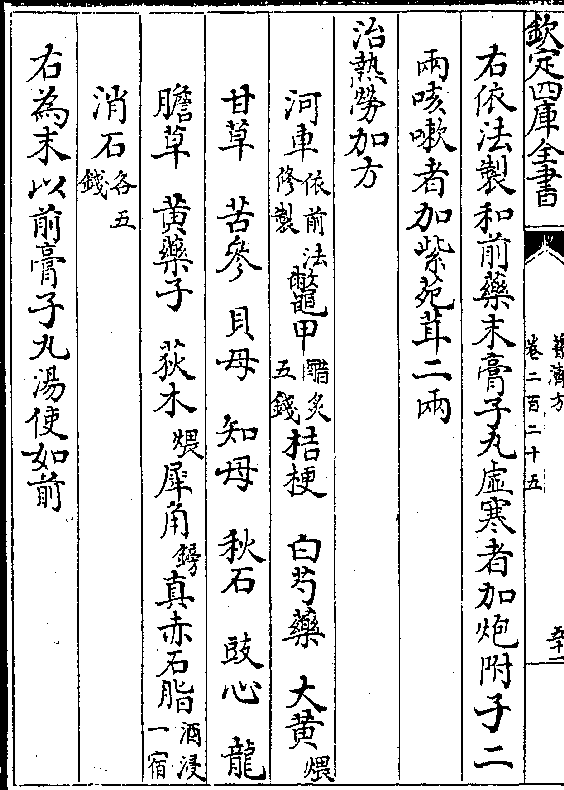 欽定四庫全書
普濟方
卷二百二十五
五十二
右依法製和前藥末膏子丸虛寒者加炮附子二
兩咳嗽者加紫菀茸二兩
治熱勞加方
河車依前法修製鼈甲醋炙五錢桔梗 白芍藥 大黄煨
甘草 苦參 貝母 知母 秋石 豉心 龍
膽草 黄藥子 莪木煨犀角鎊真赤石脂酒浸一宿
消石各五錢
右為末以前膏子丸湯使如前